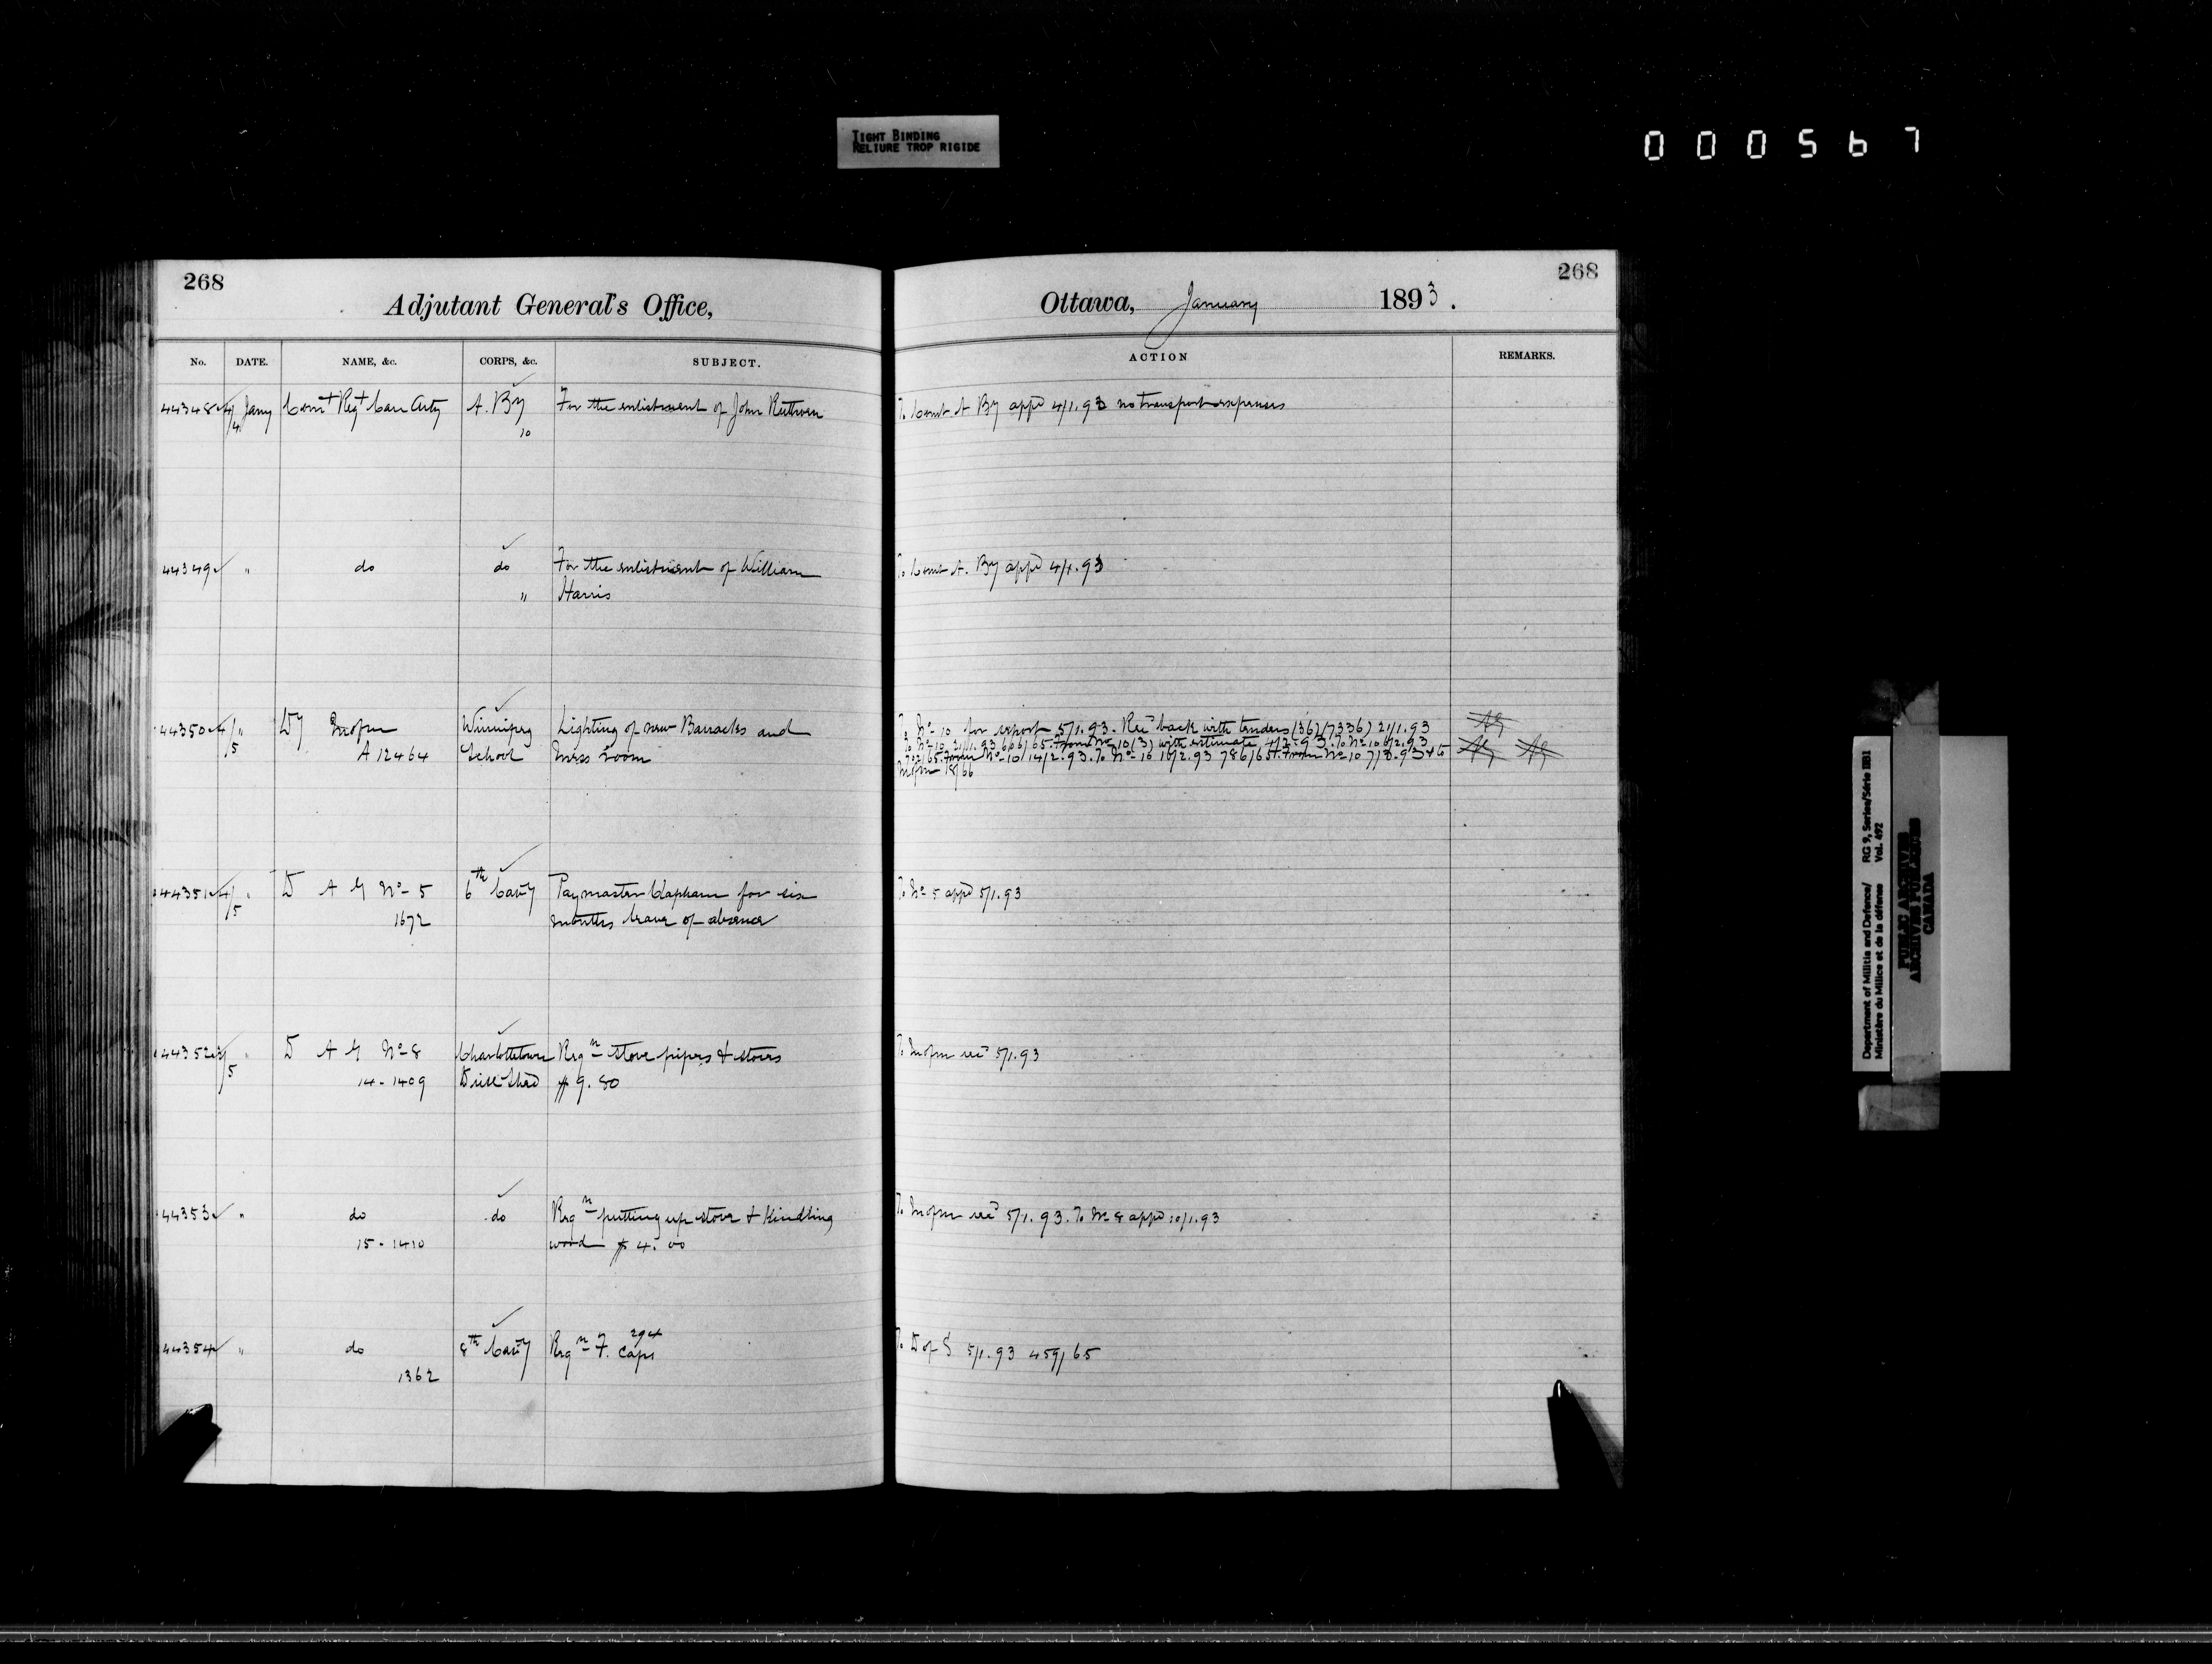 TIGHT BINDING
RELIURE TROP RIGIDE
000567
268
Adjutant General's Office,
No. DATE. NAME, &c. CORPS, &c. SUBJECT.
44348 4/4 Jany Comt Regt Can Arty A. By For the enlistment of John Ruthven
10
44349 " do do For the enlistment of William
" Harris
44350 4/5 " Dy Winnipeg Lighting of new Barracks and
A 12464 School mess room
44351 4/5 " D A G No 5 6th Cavy Paymaster Clapham for six
1672 months leave of absence
44352 /5 " D A G No 8 Charlottetown Reqn stove pipes & stoves
14-1409 Drill Shed $9.80
44353 " do do Reqn putting up stove & kindling
15-1410 wood $4.00
44354 " do 8th Cavy Reqn F. Caps 294
1362
268
Ottawa, January 1893.
ACTION REMARKS.
To Comt A By appd 4/1.93 no transport expenses
To Comt A. By appd 4/1.93
To No 10 for report 5/1.93. Recd back with tenders (36)(7336) 21/1.93
To No 10 21/1.93 666/65. From No 10 (3) with estimate 4/2.93. To No 10 6/2.93
702/65. From No 10 14/2.93. To No 10 16/2.93 786/65. From No 10 7/3.93 & to
18/66
To No 5 appd 5/1.93
To recd 5/1.93
To recd 5/1.93. To No 8 appd 10/1.93
To D of S 5/1.93 459/65
Department of Militia and Defence/ RG 9, Series/Série IIB1
Ministère du Milice et de la défense Vol. 492
PUBLIC ARCHIVES
ARCHIVES PUBLIQUES
CANADA